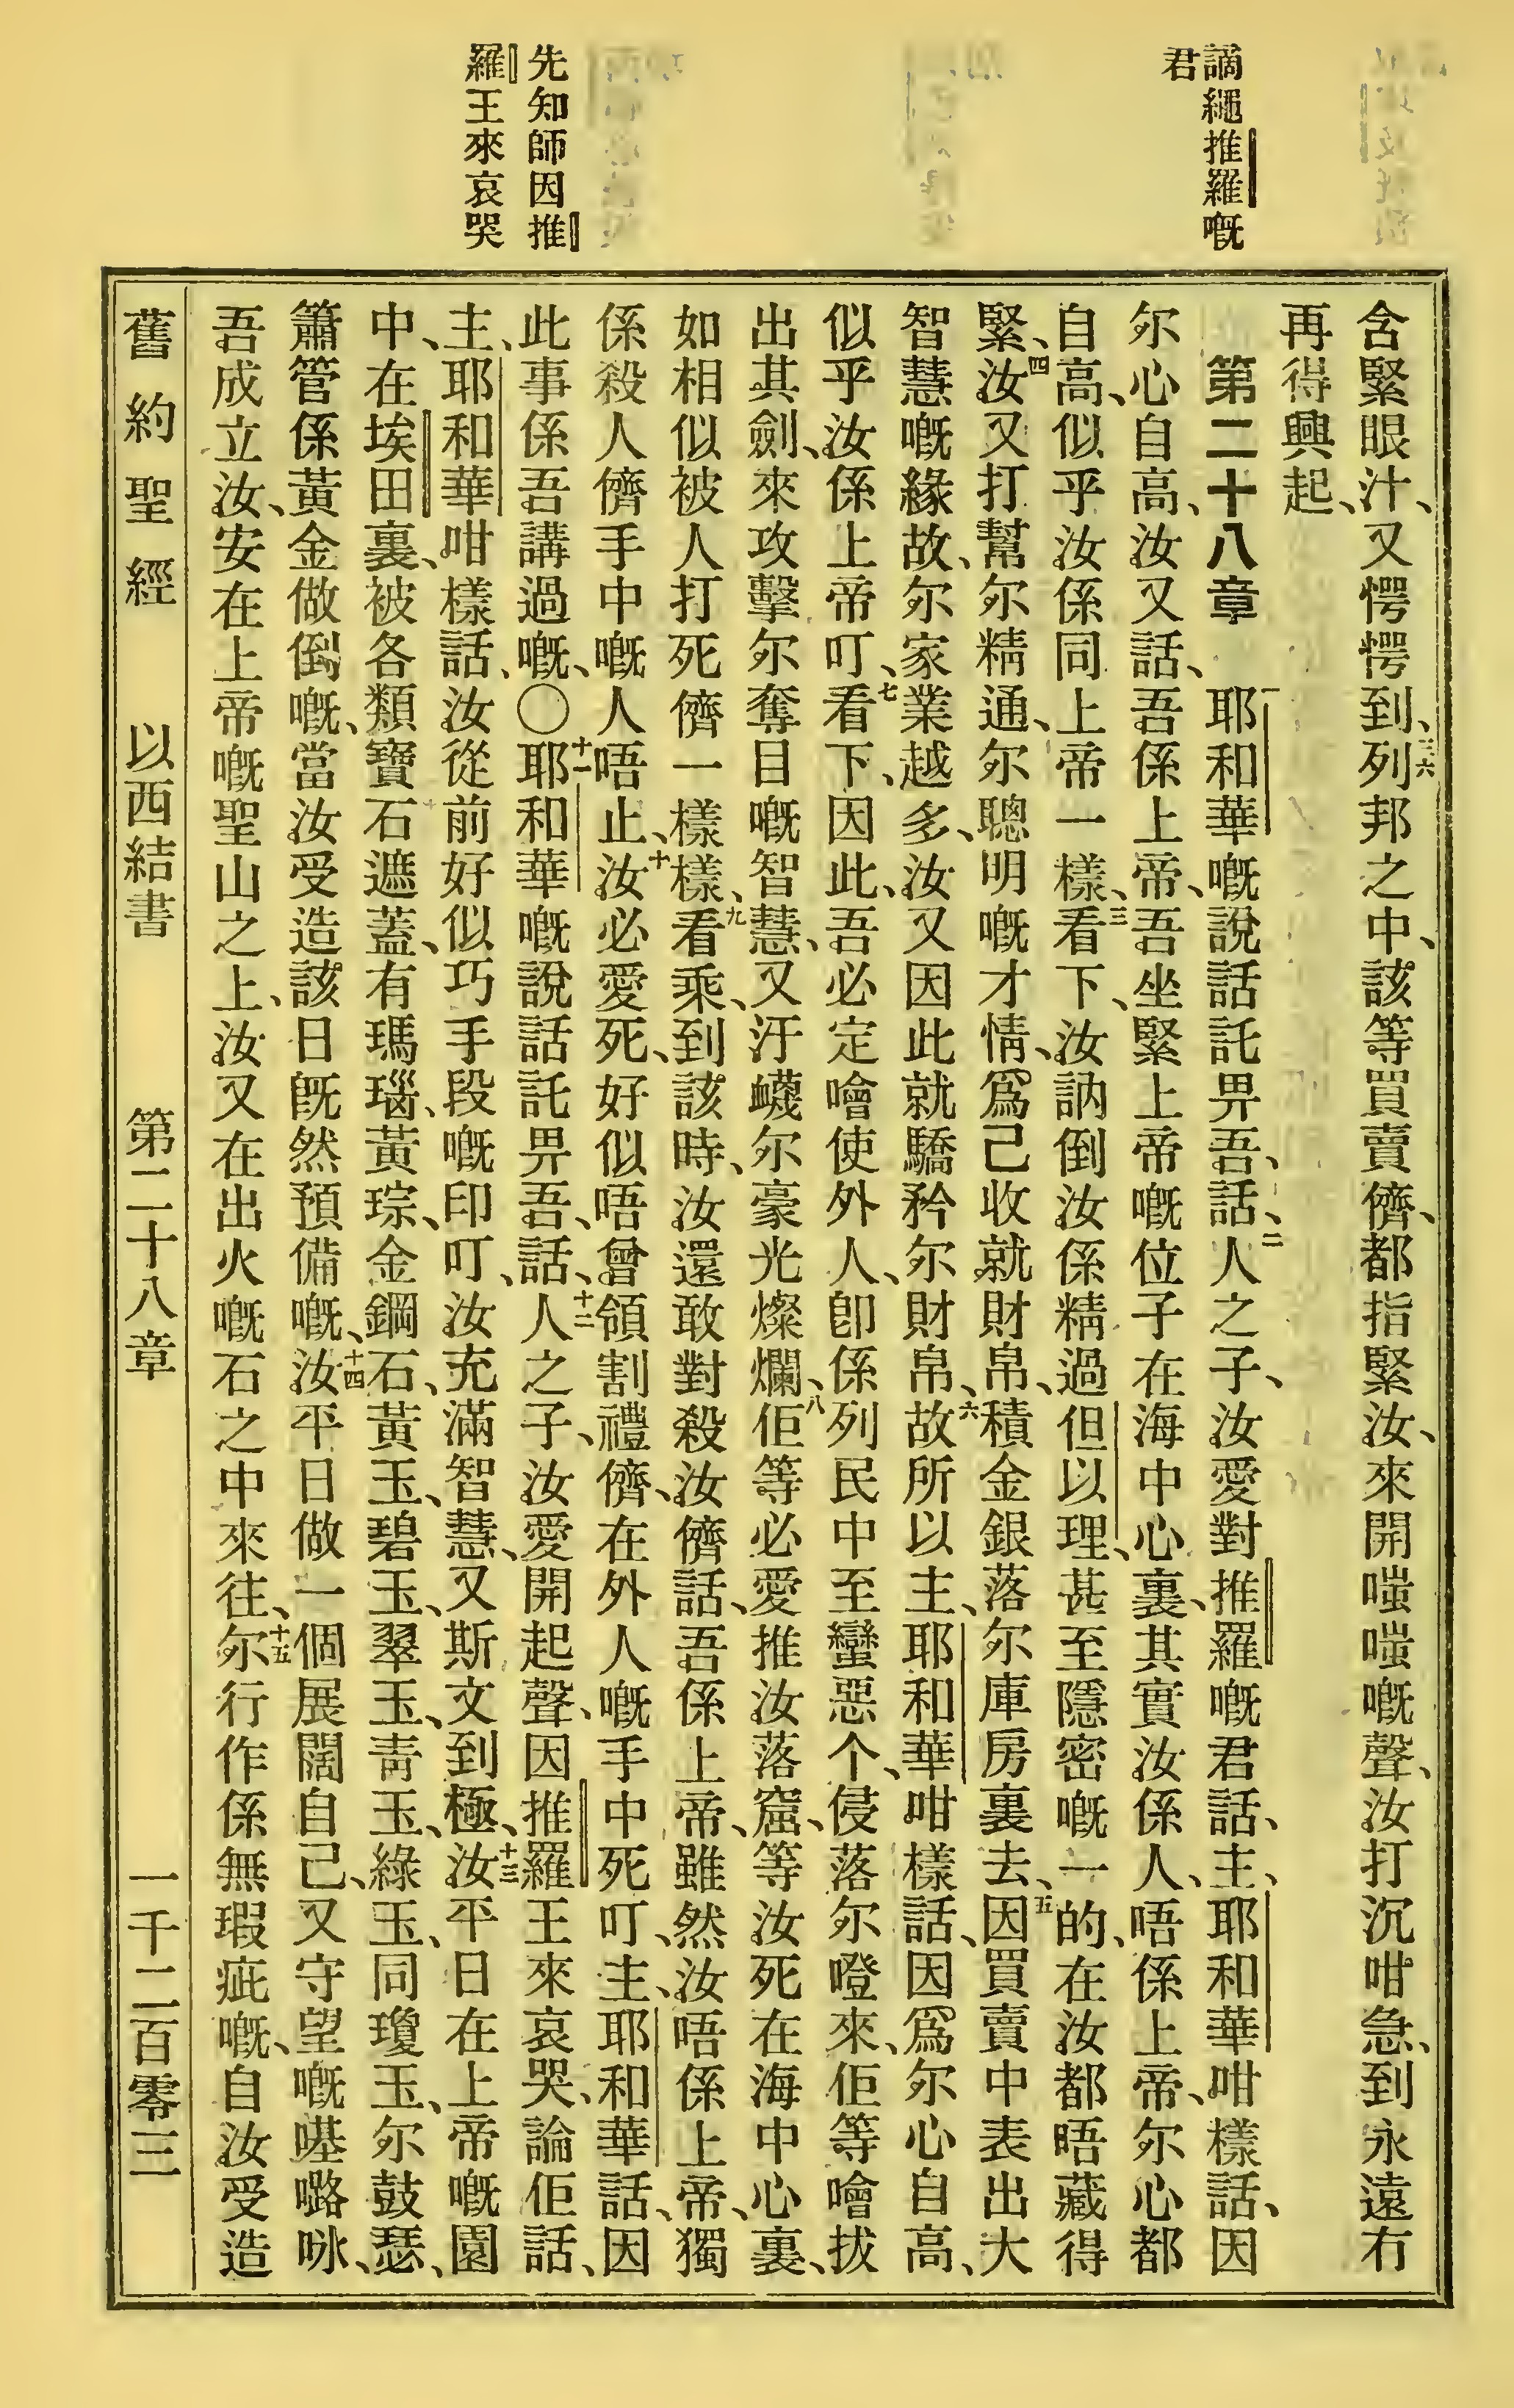 謫繩推羅嘅
君
先知師因推
羅王來哀哭
含緊眼汁、又愕愕到、三六列邦之中、該等買賣儕、都指緊汝、來開嗤嗤嘅聲、汝打沉咁急、到永遠冇
再得興起、
第二十八章 一耶和華嘅說話託畀吾、話、二人之子、汝愛對推羅嘅君話、主、耶和華咁樣話、因
尔心自高、汝又話、吾係上帝、吾坐緊上帝嘅位子在海中心裏、其實汝係人、唔係上帝、尔心都
自高、似乎汝係同上帝一樣、三看下、汝訥倒汝係精過但以理、甚至隱密嘅一的、在汝都唔藏得
緊、四汝又打幫尔精通、尔聰明嘅才情、爲己收就財帛、積金銀落尔庫房裏去、五因買賣中表出大
智慧嘅緣故、尔家業越多、汝又因此就驕矜尔財帛、六故所以主、耶和華咁樣話、因爲尔心自高、
似乎汝係上帝叮、七看下、因此、吾必定噲使外人、卽係列民中至蠻惡个、侵落尔嶝來、佢等噲拔
出其劍、來攻擊尔奪目嘅智慧、又汙衊尔豪光燦爛、八佢等必愛推汝落窟、等汝死在海中心裏、
如相似被人打死儕一樣樣、九看乘、到該時、汝還敢對殺汝儕話、吾係上帝、雖然汝唔係上帝、獨
係殺人儕手中嘅人唔止、十汝必愛死、好似唔曾領割禮儕、在外人嘅手中死叮、主、耶和華話、因
此事係吾講過嘅、〇十一耶和華嘅說話託畀吾、話、十二人之子、汝愛開起聲、因推羅王來哀哭、論佢話、
主、耶和華咁樣話、汝從前好似巧手段嘅印叮、汝充滿智慧、又斯文到極、十三汝平日在上帝嘅園
中、在埃田裏、被各類寶石遮蓋、有瑪瑙、黃琮、金鋼石、黃玉、碧玉、翠玉、靑玉、綠玉、同瓊玉、尔鼓瑟、
簫管係黃金做倒嘅、當汝受造該日旣然預備嘅、十四汝平日做一個展闊自己、又守望嘅㗲㗣咏、
吾成立汝、安在上帝嘅聖山之上、汝又在出火嘅石之中來往、十五尔行作係無瑕疵嘅、自汝受造
舊約聖經 以西結書 第二十八章 一千二百零三